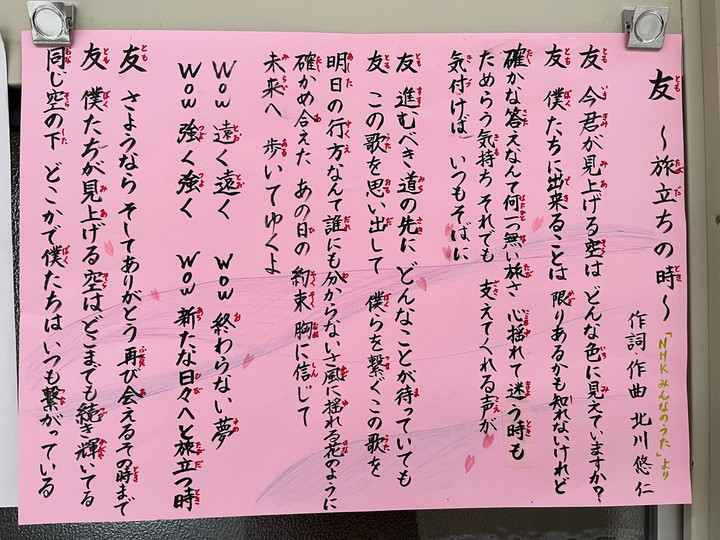 友 ～旅立ちの時～
「NHKみんなのうた」より
作詞・作曲 北川悠仁
友 今君が見上げる空は どんな色に見えていますか？
友 僕たちに出来ることは 限りあるかも知れないけれど
確かな答えなんて何一つ無い旅さ 心揺れて迷う時も
ためらう気持ち それでも 支えてくれる声が
気付けば いつもそばに
友 進むべき道の先に どんなことが待っていても
友 この歌を思い出して 僕らを繋ぐこの歌を
明日の行方なんて誰にも分からないさ 風に揺れる花のように
確かめ合えた あの日の約束 胸に信じて
未来へ 歩いてゆくよ
Wow 遠く遠く Wow 終わらない夢
Wow 強く強く Wow 新たな日々へと旅立つ時
友 さようなら そしてありがとう 再び会えるその時まで
友 僕たちが見上げる空はどこまでも続き輝いてる
同じ空の下 どこかで僕たちは いつも繋がっている